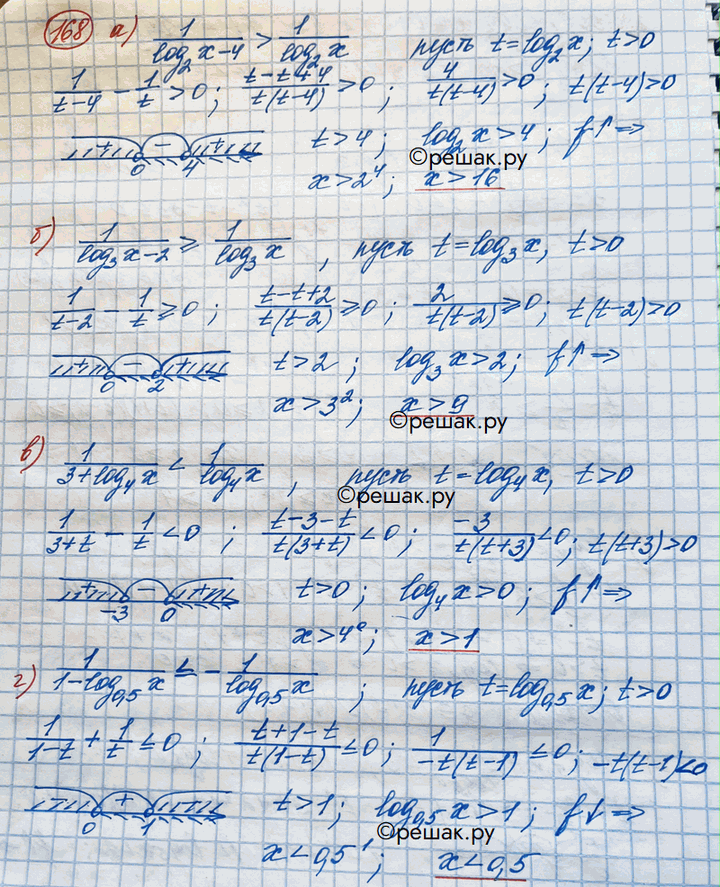 168 а) 1/(log₂x-4) > 1/(log₂x) пусть t=log₂x; t>0
1/(t-4) - 1/t > 0; (t-t+4)/(t(t-4)) > 0; 4/(t(t-4)) > 0; t(t-4)>0
+ - + 0 4 t>4; log₂x>4; f↑⇒
©решак.ру
x>2⁴; x>16
б) 1/(log₃x-2) ≥ 1/(log₃x), пусть t=log₃x, t>0
1/(t-2) - 1/t ≥ 0; (t-t+2)/(t(t-2)) ≥ 0; 2/(t(t-2)) ≥ 0; t(t-2)>0
+ - + 0 2 t>2; log₃x>2; f↑⇒
x>3²; x>9
©решак.ру
в) 1/(3+log₄x) < 1/(log₄x), пусть t=log₄x, t>0
©решак.ру
1/(3+t) - 1/t < 0; (t-3-t)/(t(3+t)) < 0; -3/(t(t+3)) < 0; t(t+3)>0
+ - + -3 0 t>0; log₄x>0; f↑⇒
x>4⁰; x>1
г) 1/(1-log₀,₅x) ≤ - 1/(log₀,₅x); пусть t=log₀,₅x; t>0
1/(1-t) + 1/t ≤ 0; (t+1-t)/(t(1-t)) ≤ 0; 1/(-t(t-1)) ≤ 0; -t(t-1)<0
+ 0 1 t>1; log₀,₅x>1; f↓⇒
©решак.ру
x<0,5¹; x<0,5